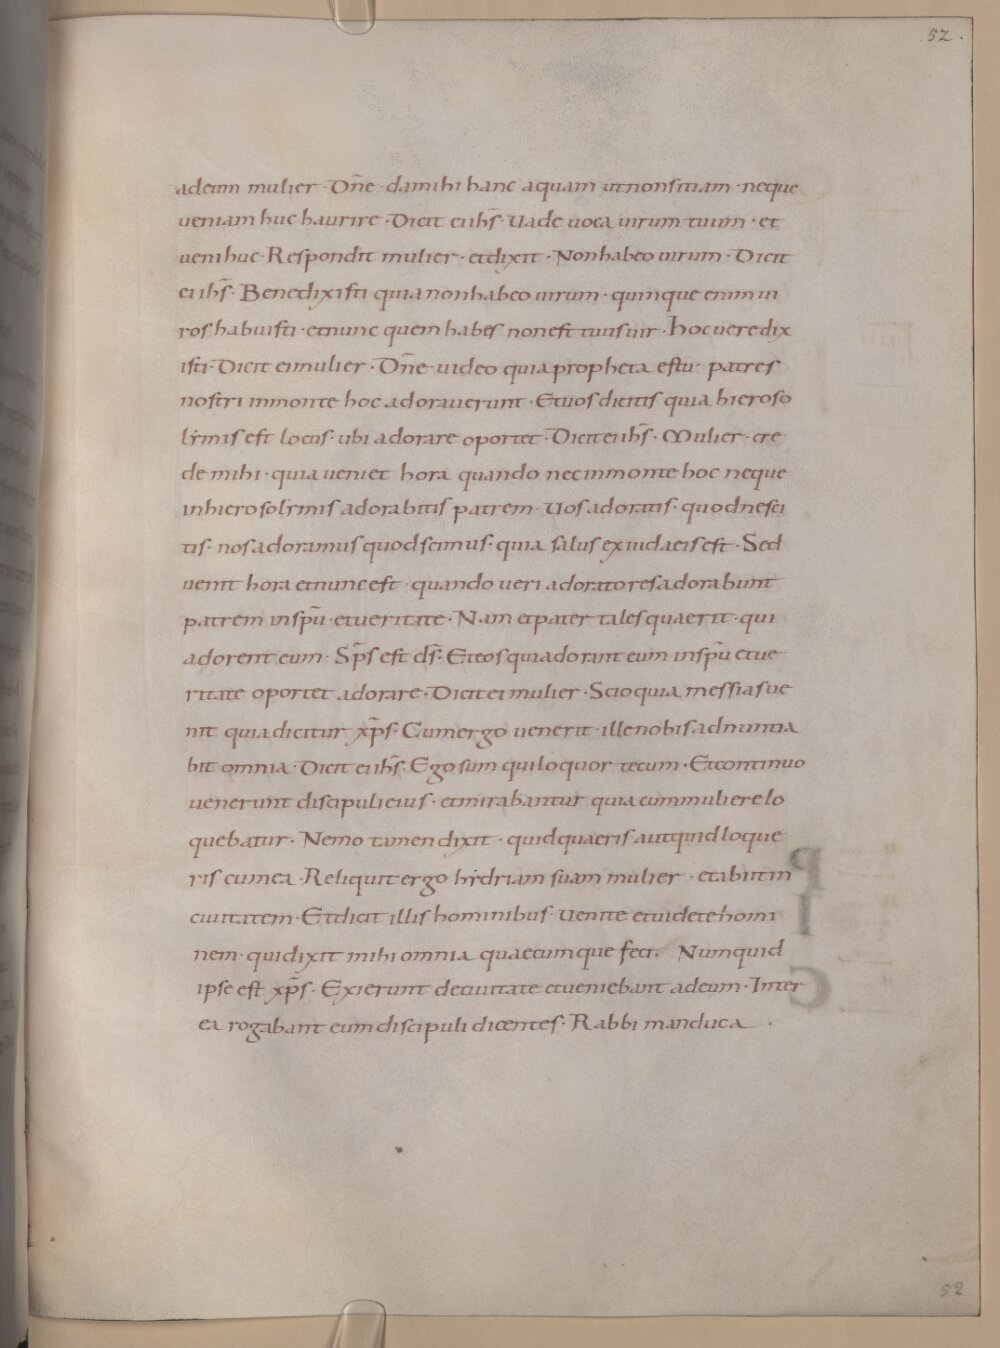 52.
ad eum mulier · Dn̄e · da mihi hanc aquam ut non sitiam · neque
ueniam huc haurire · Dicit ei ih̄s · Uade uoca uirum tuum · et
ueni huc · Respondit mulier · et dixit · Non habeo uirum · Dicit
ei ih̄s · Bene dixisti quia non habeo uirum · quinque enim ui
ros habuisti · et nunc quem habes non est tuus uir · hoc uere dix
isti · Dicit ei mulier · Dn̄e · uideo quia propheta es tu · patres
nostri in monte hoc adorauerunt · Et uos dicitis quia hieroso
lymis est locus · ubi adorare oportet · Dicit ei ih̄s · Mulier · cre
de mihi · quia ueniet hora quando nec in monte hoc neque
in hierosolymis adorabitis patrem · Uos adoratis · quod nesci
tis · nos adoramus quod scimus · quia salus ex iudaeis est · Sed
uenit hora et nunc est · quando ueri adoratores adorabunt
patrem in sp̄u · et ueritate · Nam et pater tales quaerit · qui
adorent eum · Sp̄s est d̄s · Et eos qui adorant eum in sp̄u et ue
ritate oportet adorare · Dicit ei mulier · Scio quia messias ue
nit quia dicitur xp̄s · Cum ergo uenerit · ille nobis adnuntia
bit omnia · Dicit ei ih̄s · Ego sum qui loquor tecum · Et continuo
uenerunt discipuli eius · et mirabantur quia cum muliere lo
quebatur · Nemo tamen dixit · quid quaeris aut quid loque
ris cum ea · Reliquit ergo hydriam suam mulier · et abiit in
ciuitatem · Et dicit illis hominibus · Uenite et uidete homi
nem · qui dixit mihi omnia quaecumque feci · Numquid
ipse est xp̄s · Exierunt de ciuitate et ueniebant ad eum · Inter
ea rogabant eum discipuli dicentes · Rabbi manduca ·
52